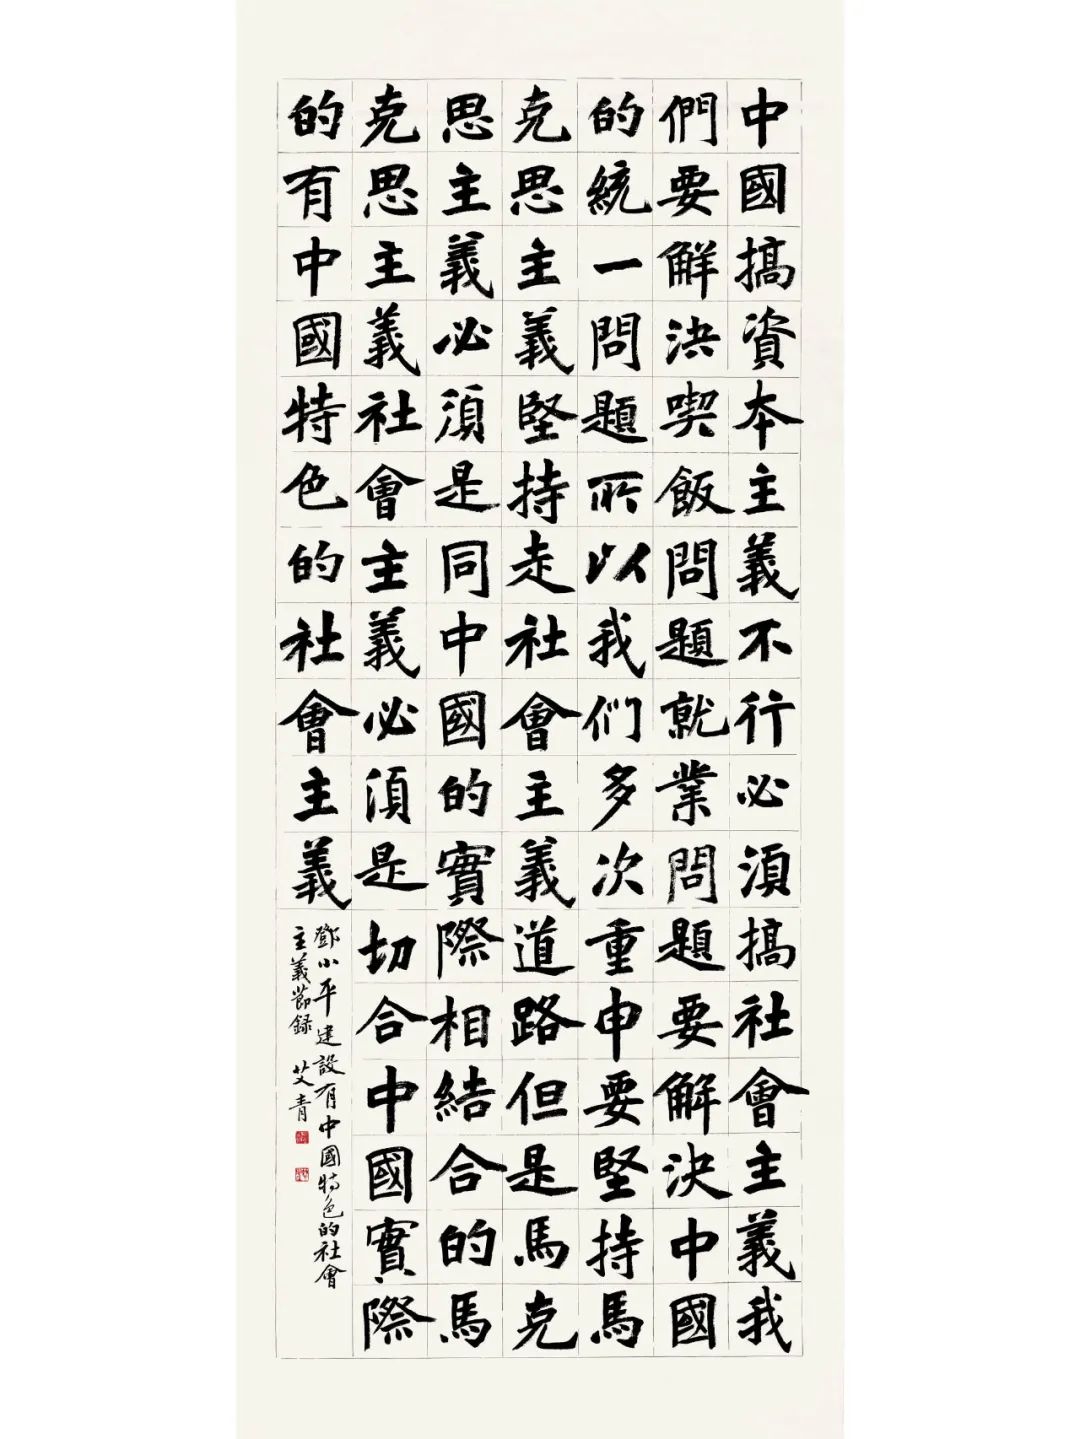 中國搞資本主義不行必須搞社會主義我
們要解決喫飯問題就業問題要解決中國
的統一問題所以我们多次重申要堅持馬
克思主義堅持走社會主義道路但是馬克
思主義必須是同中國的實際相結合的馬
克思主義社會主義必須是切合中國實際
的有中國特色的社會主義
鄧小平建設有中國特色的社會
主義節録 艾青